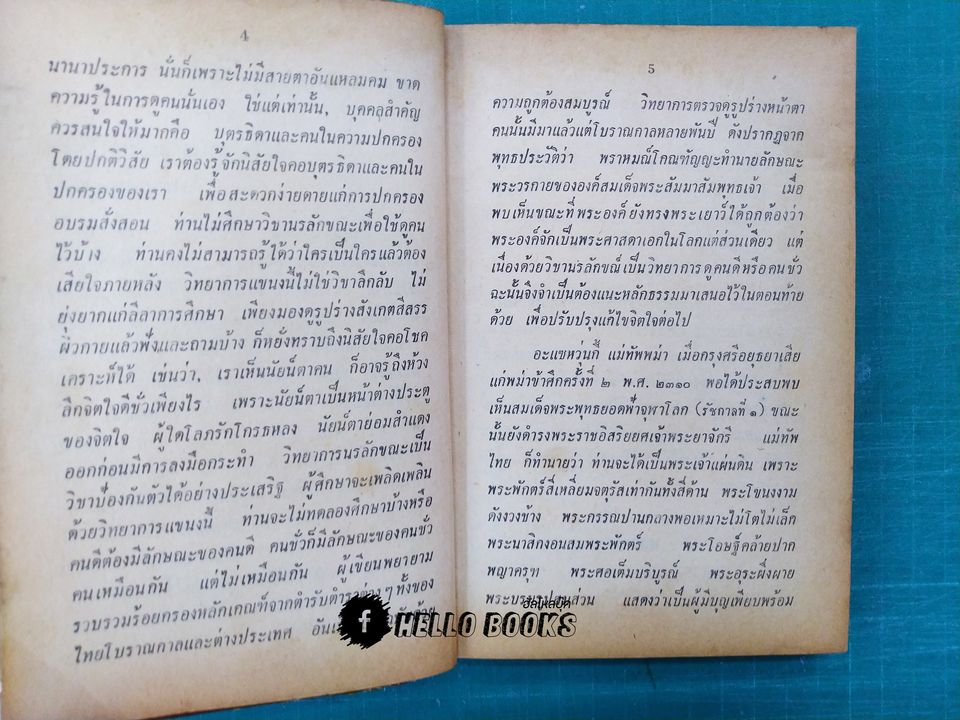 4
นานาประการ นั่นก็เพราะไม่มีสายตาอันแหลมคม ขาด
ความรู้ในการดูคนนั่นเอง ใช่แต่เท่านั้น, บุคคลสำคัญ
ควรสนใจให้มากคือ บุตรธิดาและคนในความปกครอง
โดยปกติวิสัย เราต้องรู้จักนิสัยใจคอบุตรธิดาและคนใน
ปกครองของเรา เพื่อสะดวกง่ายดายแก่การปกครอง
อบรมสั่งสอน ท่านไม่ศึกษาวิชานรลักขณะเพื่อใช้ดูคน
ไว้บ้าง ท่านคงไม่สามารถรู้ได้ว่าใครเป็นใครแล้วต้อง
เสียใจภายหลัง วิทยาการแขนงนี้ไม่ใช่วิชาลึกลับ ไม่
ยุ่งยากแก่ลีลาการศึกษา เพียงมองดูรูปร่างสังเกตสีสรร
ผิวกายแล้วฟังและถามบ้าง ก็หยั่งทราบถึงนิสัยใจคอโชค
เคราะห์ได้ เช่นว่า, เราเห็นนัยน์ตาคน ก็อาจรู้ถึงห้วง
ลึกจิตใจดีชั่วเพียงไร เพราะนัยน์ตาเป็นหน้าต่างประตู
ของจิตใจ ผู้ใดโลภรักโกรธหลง นัยน์ตาย่อมสำแดง
ออกก่อนมีการลงมือกระทำ วิทยาการนรลักขณะเป็น
วิชาป้องกันตัวได้อย่างประเสริฐ ผู้ศึกษาจะเพลิดเพลิน
ด้วยวิทยาการแขนงนี้ ท่านจะไม่ทดลองศึกษาบ้างหรือ
คนดีต้องมีลักษณะของคนดี คนชั่วก็มีลักษณะของคนชั่ว
คนเหมือนกัน แต่ไม่เหมือนกัน ผู้เขียนพยายาม
รวบรวมร้อยกรองหลักเกณฑ์จากตำรับตำราต่างๆ ทั้งของ
ไทยโบราณกาลและต่างประเทศ
5
ความถูกต้องสมบูรณ์ วิทยาการตรวจดูรูปร่างหน้าตา
คนนั้นมีมาแล้วแต่โบราณกาลหลายพันปี ดังปรากฏจาก
พุทธประวัติว่า พราหมณ์โกณฑัญญะทำนายลักษณะ
พระวรกายขององค์สมเด็จพระสัมมาสัมพุทธเจ้า เมื่อ
พบเห็นขณะที่พระองค์ยังทรงพระเยาว์ได้ถูกต้องว่า
พระองค์จักเป็นพระศาสดาเอกในโลกแต่ส่วนเดียว แต่
เนื่องด้วยวิชานรลักขณ์เป็นวิทยาการดูคนดีหรือคนชั่ว
ฉะนั้นจึงจำเป็นต้องแนะหลักธรรมมาเสนอไว้ในตอนท้าย
ด้วย เพื่อปรับปรุงแก้ไขจิตใจต่อไป
อะแซหวุ่นกี้ แม่ทัพพม่า เมื่อกรุงศรีอยุธยาเสีย
แก่พม่าข้าศึกครั้งที่ ๒ พ.ศ. ๒๓๑๐ พอได้ประสบพบ
เห็นสมเด็จพระพุทธยอดฟ้าจุฬาโลก (รัชกาลที่ ๑) ขณะ
นั้นยังดำรงพระราชอิสริยยศเจ้าพระยาจักรี แม่ทัพ
ไทย ก็ทำนายว่า ท่านจะได้เป็นพระเจ้าแผ่นดิน เพราะ
พระพักตร์สี่เหลี่ยมจตุรัสเท่ากันทั้งสี่ด้าน พระโขนงงาม
ดังงวงช้าง พระกรรณปานกลางพอเหมาะไม่โตไม่เล็ก
พระนาสิกงอนสมพระพักตร์ พระโอษฐ์คล้ายปาก
พญาครุฑ พระศอเต็มบริบูรณ์ พระอุระผึ่งผาย
แสดงว่าเป็นผู้มีบุญเพียบพร้อม
ฮัลโหลบุ๊ค
HELLO BOOKS